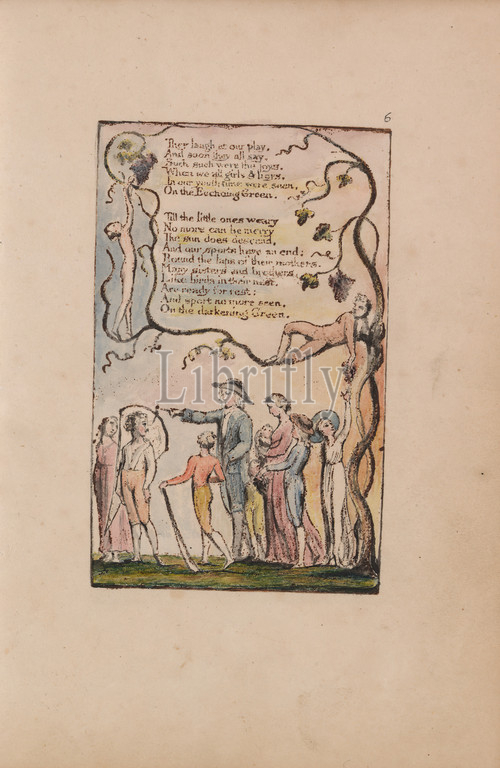 6
They laugh at our play,
And soon they all say.
Such such were the joys.
When we all girls & boys,
In our youth-time were seen,
On the Ecchoing Green.
Till the little ones weary
No more can be merry
The sun does descend,
And our sports have an end:
Round the laps of their mothers,
Many sisters and brothers,
Like birds in their nest,
Are ready for rest;
And sport no more seen,
On the darkening Green.
Librifly